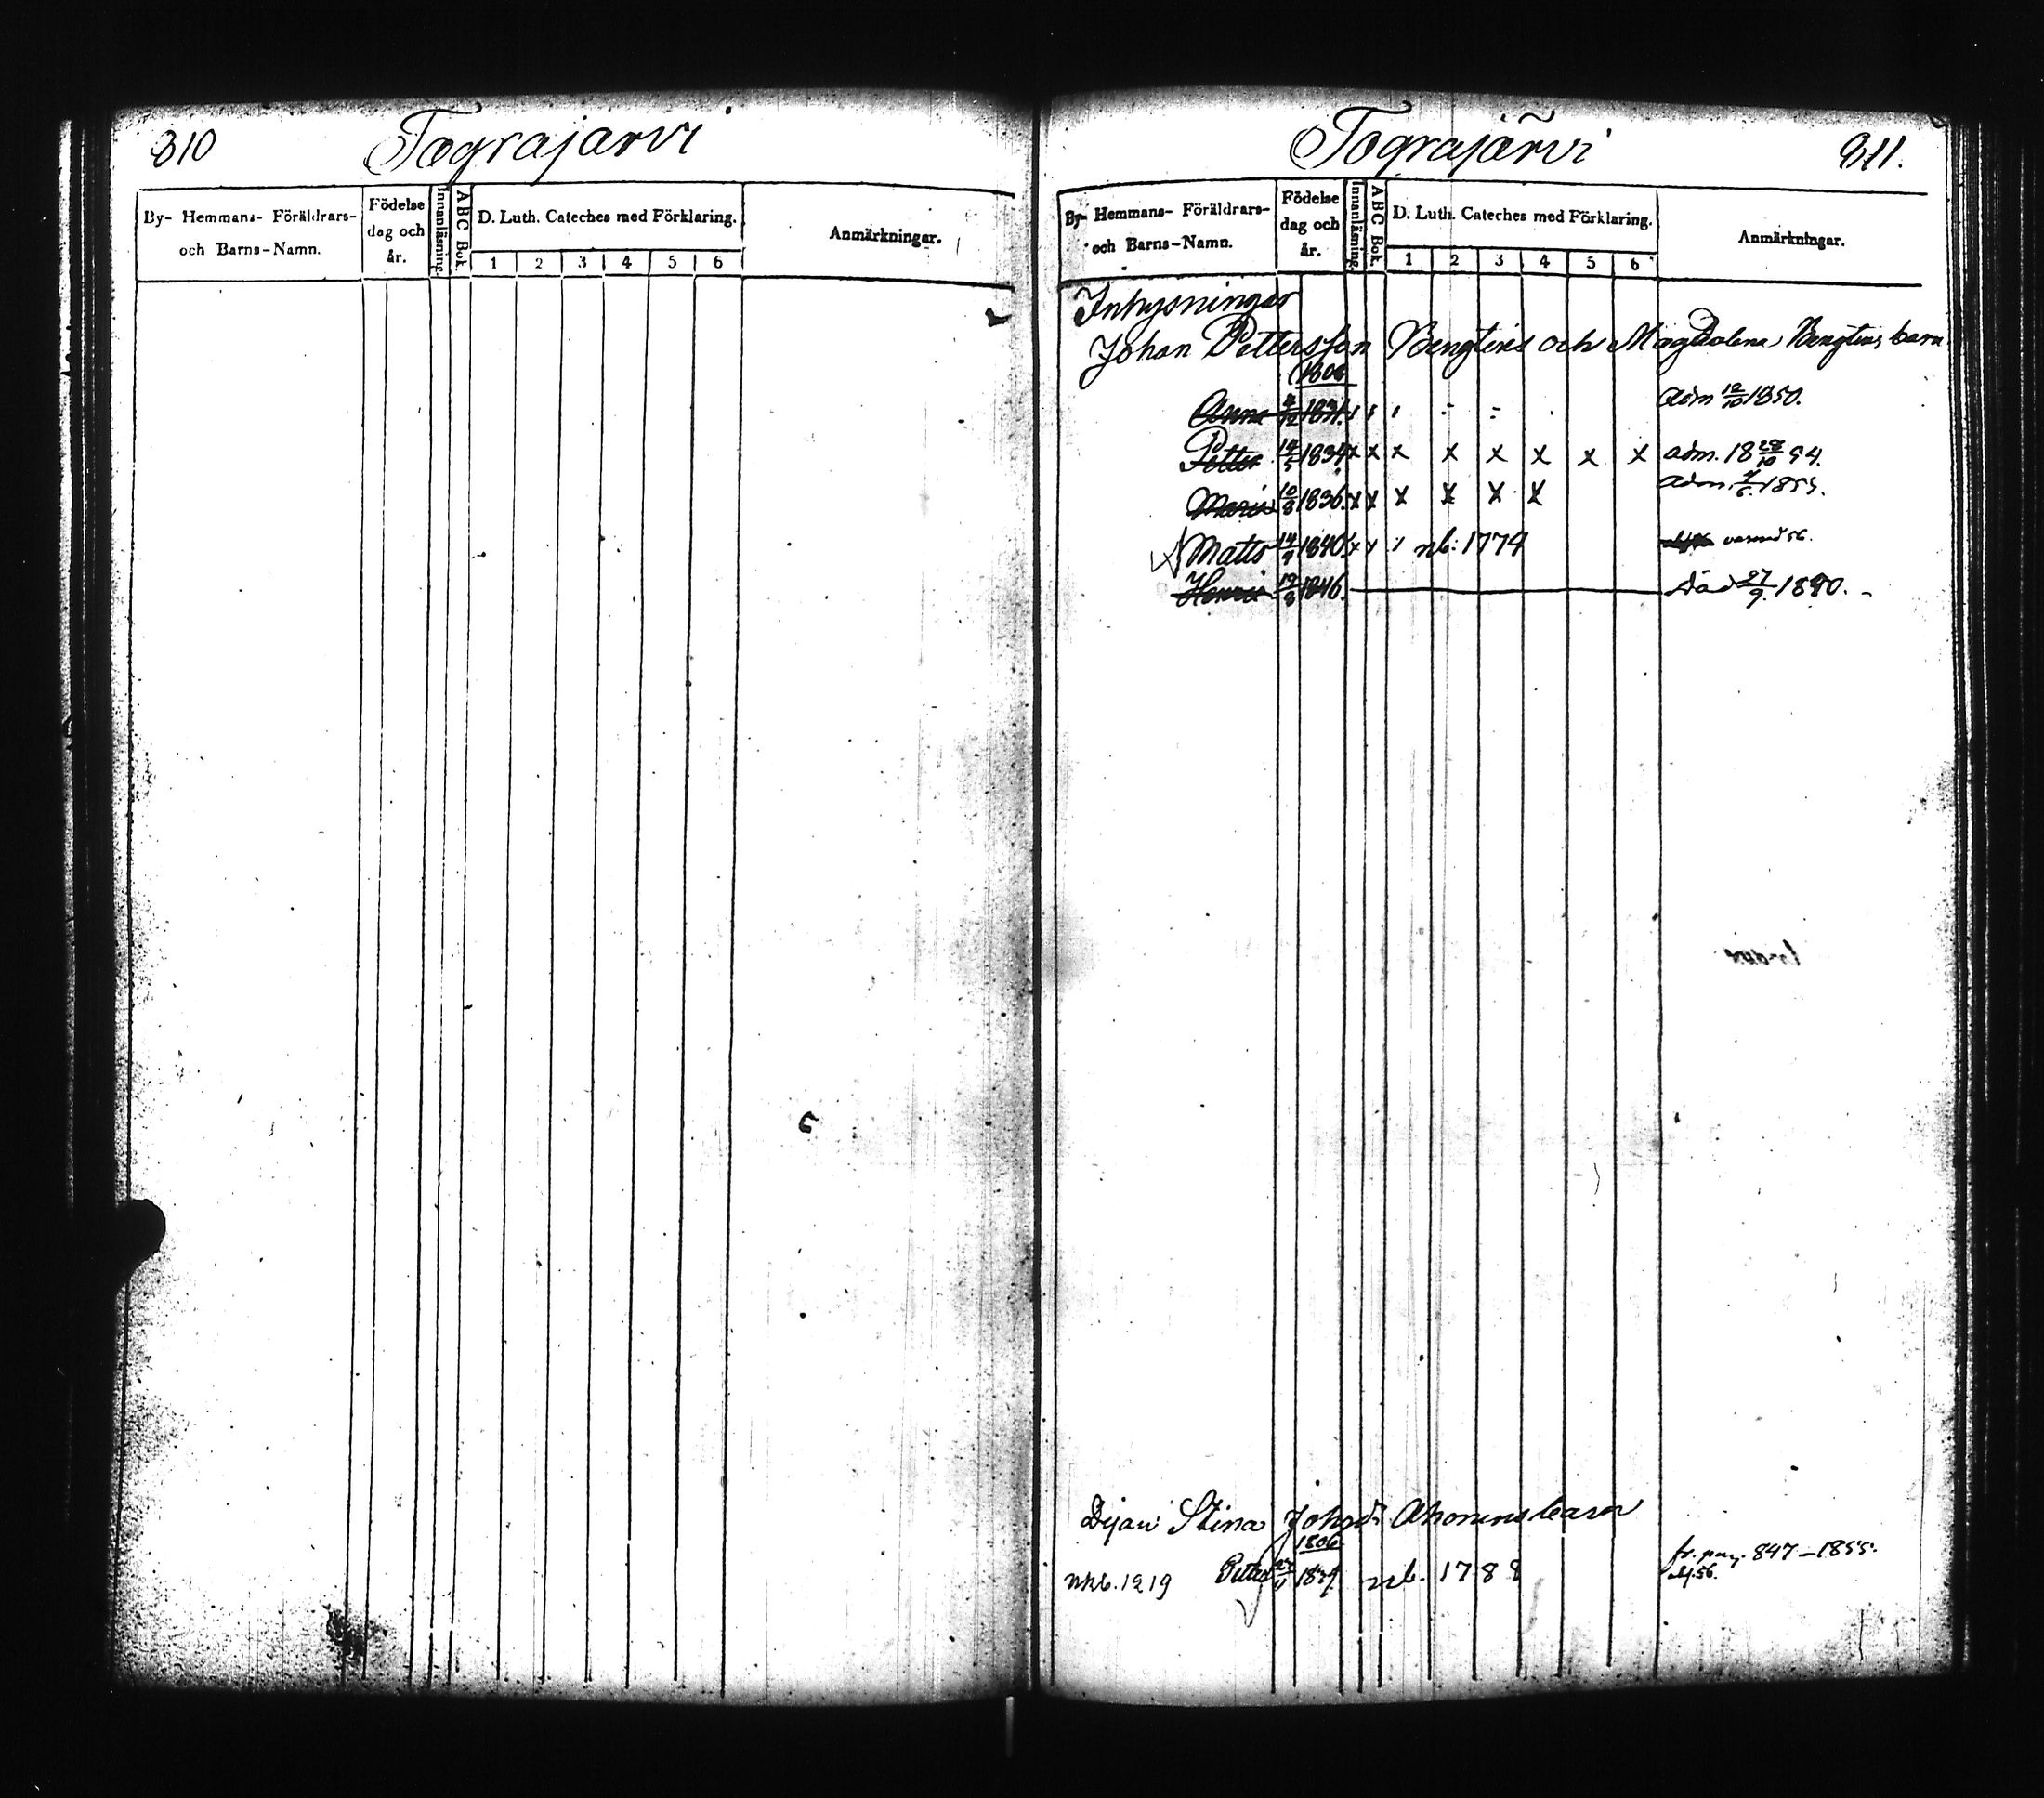 810 Tograjarvi
By- Hemmans- Föräldrars- och Barns-Namn. Födelse dag och år. Innanläsning. ABC Bok. D. Luth. Cateches med Förklaring. 1 2 3 4 5 6 Anmärkningar.
Tograjärvi 811.
By- Hemmans- Föräldrars- och Barns-Namn. Födelse dag och år. Innanläsning. ABC Bok. D. Luth. Cateches med Förklaring. 1 2 3 4 5 6 Anmärkningar.
Inhysningar
Johan Pettersson Bengtins och Magdalena Bengtins barn
1806
Anna 1831. Adm 12/10 1850.
Petter 14/5 1834 x x x x x x x x adm. 18 28/10 54.
Maria 10/8 1836. x x x x x x Adm. 1855.
Matts 14/9 1840. x nb: 1774 56.
Henric 19/8 1846. Död 27/9. 1850.
Dejan Stina Ahonens barn
1806
nkb. 1219 Petter 1839. nb. 1788 fr. pag. 847 – 1855.
56.